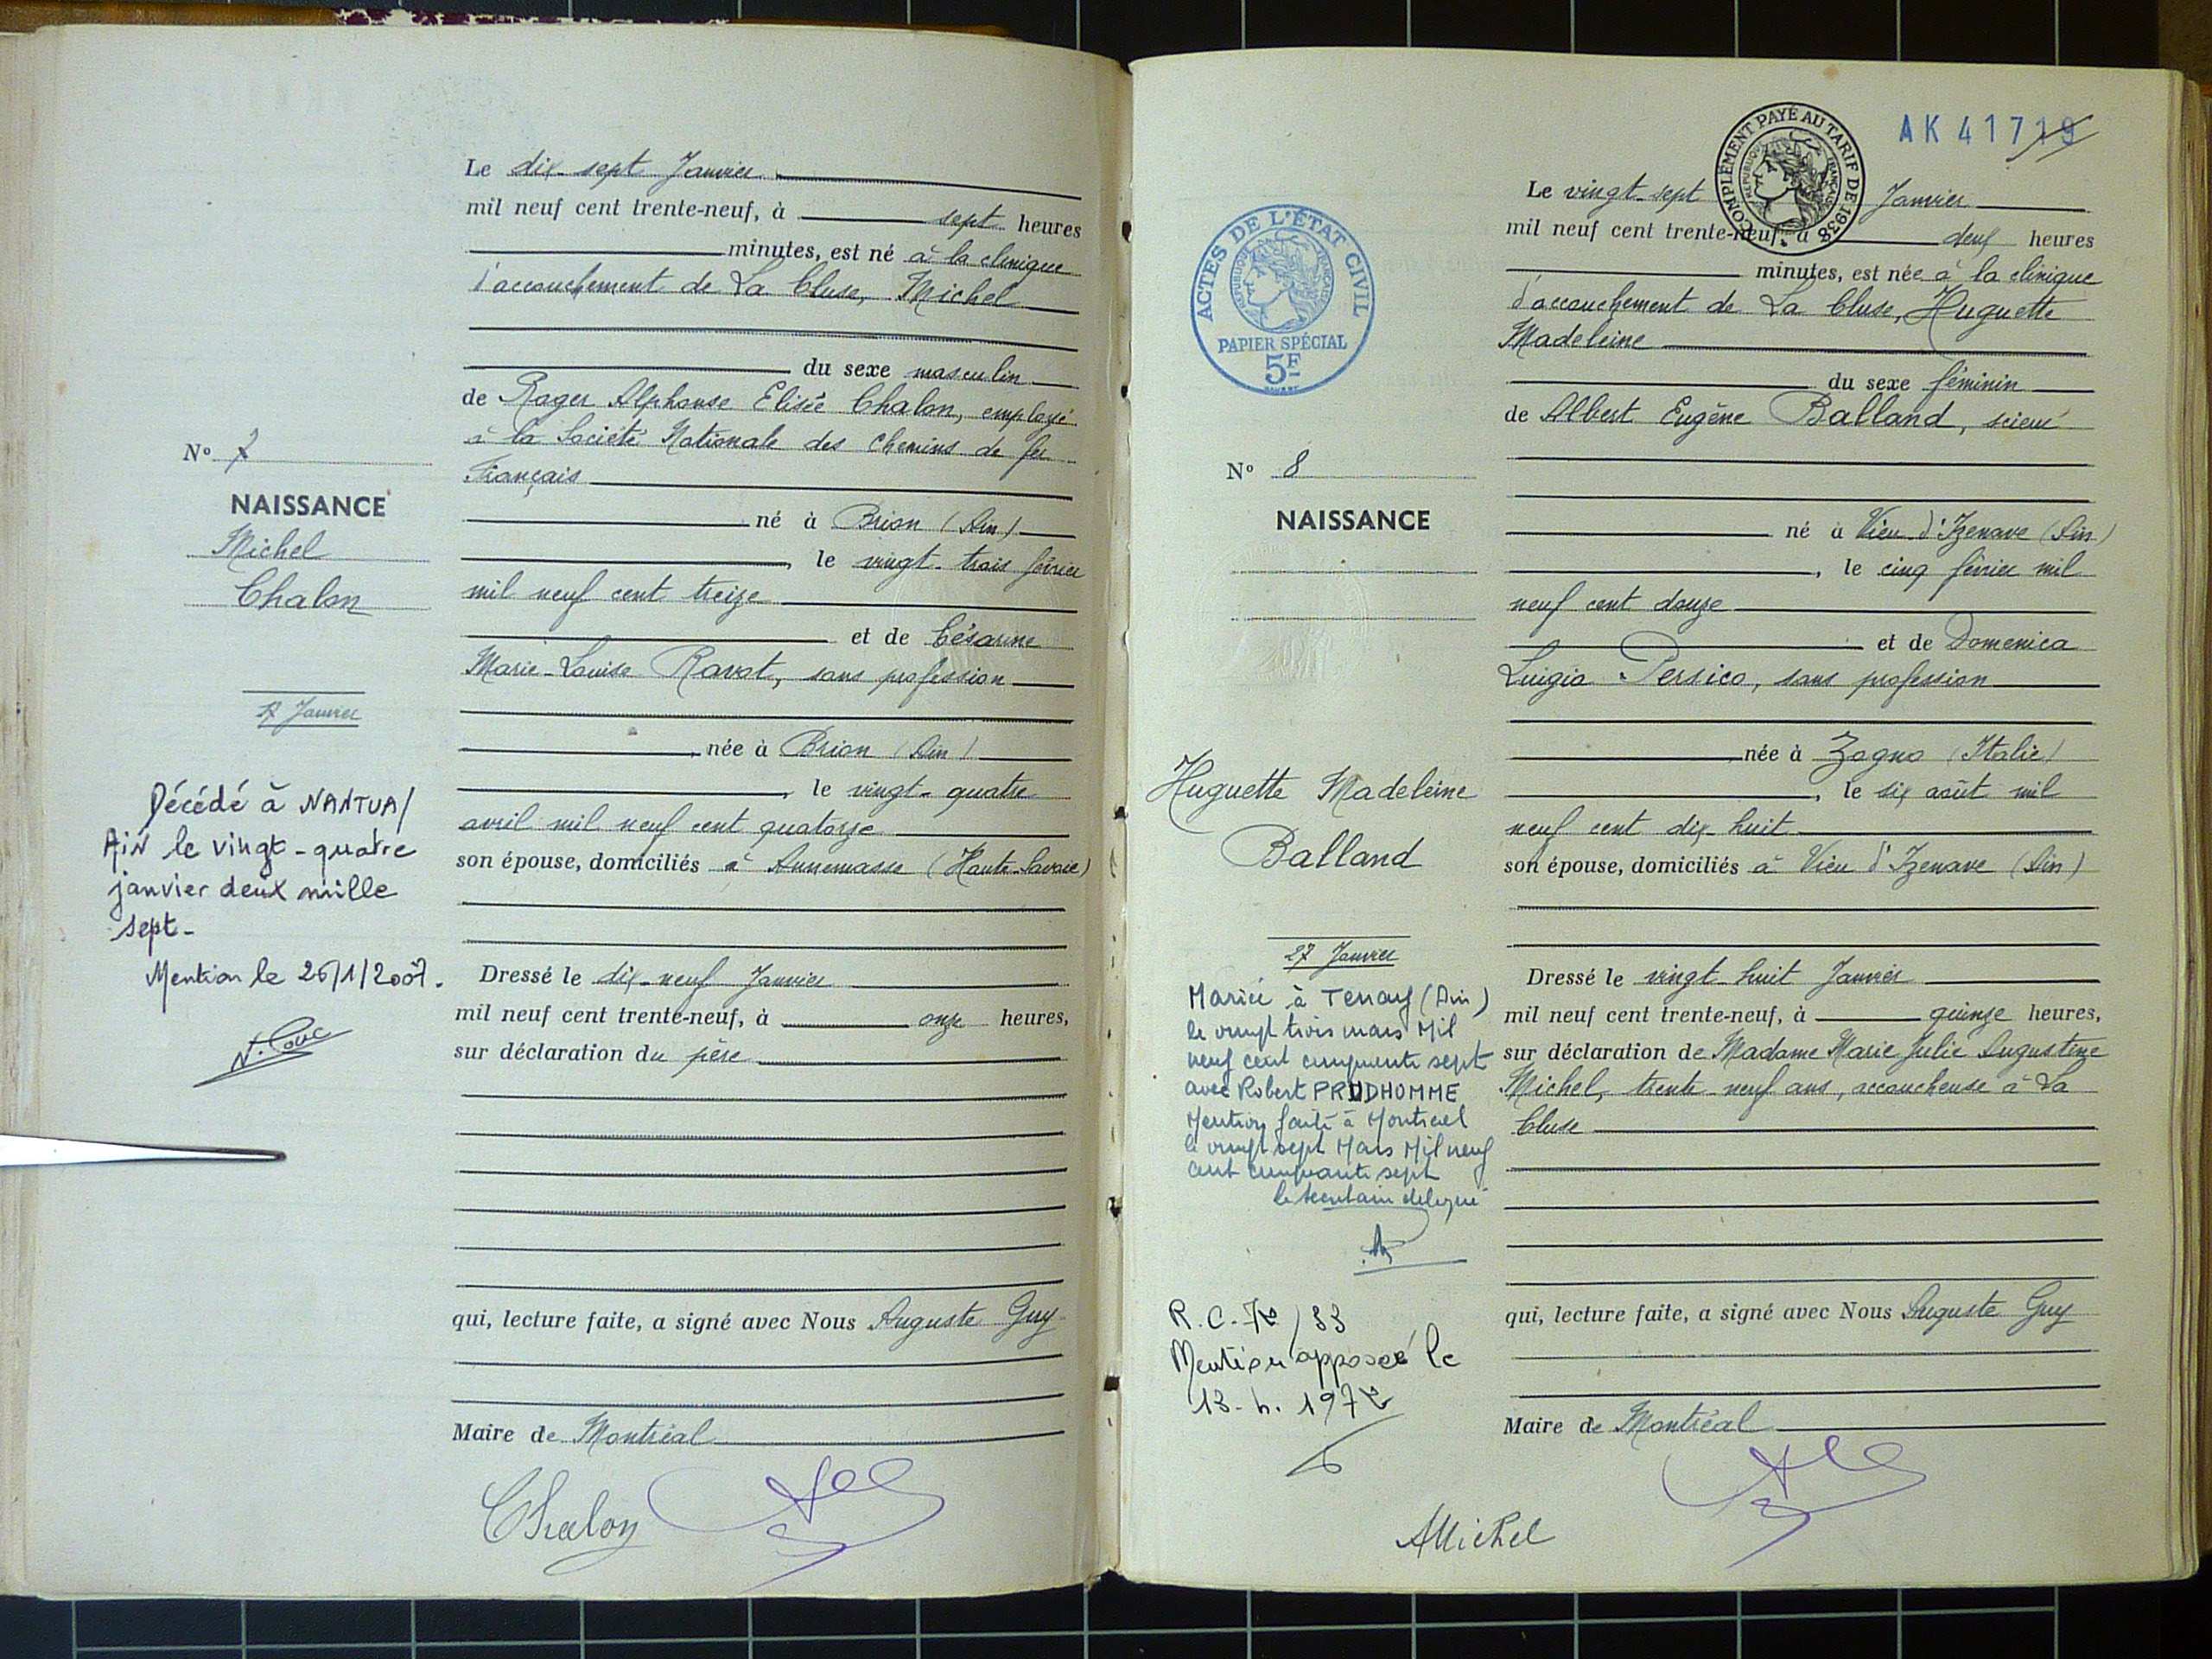 Le dix-sept Janvier
mil neuf cent trente-neuf, à sept heures
minutes, est né à la clinique
d'accouchement de La Cluse, Michel
du sexe masculin
de Roger Alphonse Elisée Chalon, employé
à la Société Nationale des Chemins de fer
Français
né à Brion (Ain)
, le vingt-trois février
mil neuf cent treize
et de Césarine
Marie-Louise Ravot, sans profession
, née à Brion (Ain)
, le vingt-quatre
avril mil neuf cent quatorze
son épouse, domiciliés à Annemasse (Haute-Savoie)
Dressé le dix-neuf Janvier
mil neuf cent trente-neuf, à onze heures,
sur déclaration du père
qui, lecture faite, a signé avec Nous Auguste Guy
Maire de Montréal
Chalon
N° 7
NAISSANCE
Michel
Chalon
17 Janvier
Décédé à NANTUA/
AiN le vingt-quatre
janvier deux mille
sept-
Mention le 26/1/2007.
AK 41719
COMPLÉMENT PAYÉ AU TARIF DE 1938
RÉPUBLIQUE FRANÇAISE
ACTES DE L'ÉTAT CIVIL
RÉPUBLIQUE FRANÇAISE
PAPIER SPÉCIAL
5F
Le vingt-sept Janvier
mil neuf cent trente-neuf, à deux heures
minutes, est née à la clinique
d'accouchement de La Cluse, Huguette
Madeleine
du sexe féminin
de Albert Eugène Balland, scieur
né à Vieu d'Izenave (Ain)
, le cinq février mil
neuf cent douze
et de Domenica
Luigia Persico, sans profession
, née à Zogno (Italie)
, le six août mil
neuf cent dix-huit
son épouse, domiciliés à Vieu d'Izenave (Ain)
Dressé le vingt-huit Janvier
mil neuf cent trente-neuf, à quinze heures,
sur déclaration de Madame Marie Julie Augustine
Michel, trente-neuf ans, accoucheuse à La
Cluse
qui, lecture faite, a signé avec Nous Auguste Guy
Maire de Montréal
AMichel
N° 8
NAISSANCE
Huguette Madeleine
Balland
27 Janvier
Mariée à Tenay (Ain)
le vingt trois mars Mil
neuf cent cinquante sept
avec Robert PRUDHOMME
Mention faite à Montréal
le vingt sept Mars Mil neuf
cent cinquante sept
le secrétaire délégué
R.C. /33
Mention apposée le